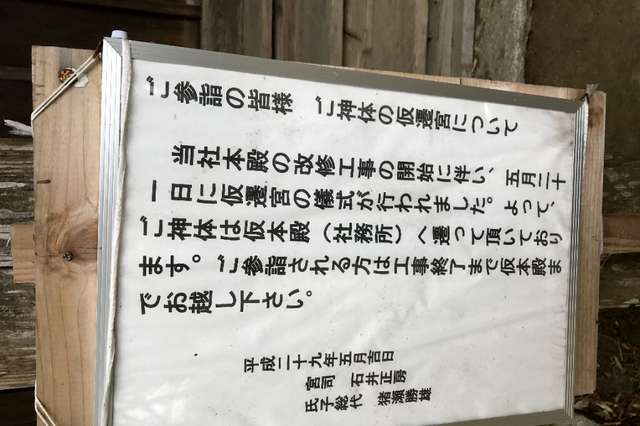 ご参詣の皆様　ご神体の仮遷宮について
当社本殿の改修工事の開始に伴い、五月二十
一日に仮遷宮の儀式が行われました。よって、
ご神体は仮本殿（社務所）へ遷って頂いており
ます。ご参詣される方は工事終了まで仮本殿ま
でお越し下さい。
平成二十九年五月吉日
宮司　石井正房
氏子総代　猪瀬勝雄